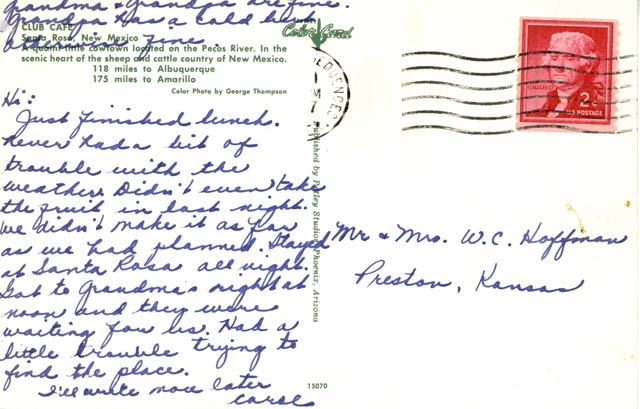 Grandma & Grandpa are fine.
Grandpa has a cold but
CLUB CAFE
Santa Rosa, New Mexico
A quaint little cowtown located on the Pecos River. In the
scenic heart of the sheep and cattle country of New Mexico.
118 miles to Albuquerque
175 miles to Amarillo
Color Photo by George Thompson
ColorCard
Hi:
Just finished lunch.
Never had a bit of
trouble with the
weather. Didn't even take
the fruit in last night.
We didn't make it as far
as we had planned. Stayed
at Santa Rosa all night.
Got to Grandma's right at
noon and they were
waiting for us. Had a
little trouble trying to
find the place.
I'll write more later
Published by Petley Studios, Phoenix, Arizona
15070
2¢
U.S. POSTAGE
Mr & Mrs. W.C. Hoffman
Preston, Kansas